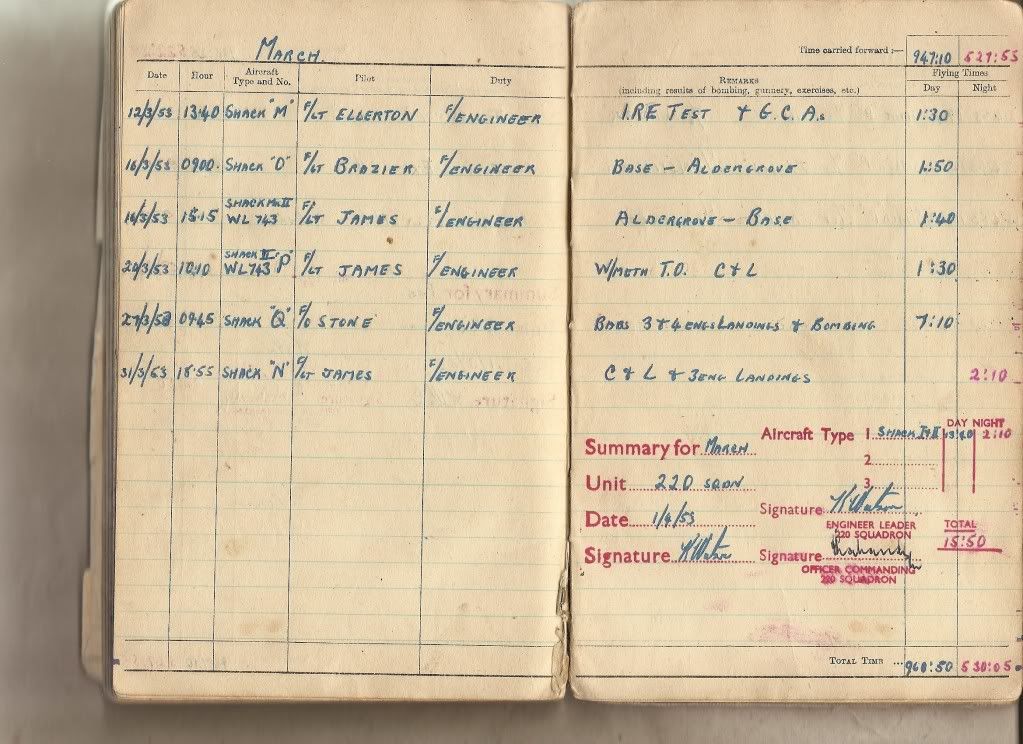 MARCH.
Time carried forward :— 947:10 527:55
Date Hour Aircraft Type and No. Pilot Duty REMARKS (including results of bombing, gunnery, exercises, etc.) Flying Times Day Night
12/3/53 13:40 SHACK "M" F/LT ELLERTON F/ENGINEER I.RE TEST & G.C.A.s 1:30
16/3/53 0900. SHACK "O" F/LT BRAZIER F/ENGINEER BASE — ALDERGROVE 1:50
16/3/53 15:15 SHACK MK II WL 743 F/LT JAMES F/ENGINEER ALDERGROVE — BASE 1:40
20/3/53 10:10 SHACK II "P" WL743 F/LT JAMES F/ENGINEER W/METH T.O. C & L 1:30
27/3/53 0945 SHACK "Q" F/O STONE F/ENGINEER BABS 3 & 4 ENGS LANDINGS & BOMBING 7:10
31/3/53 18:55 SHACK "N" F/LT JAMES F/ENGINEER C & L & 3 ENG LANDINGS 2:10
DAY NIGHT
Summary for MARCH Aircraft Type 1 SHACK I & II 13:40 2:10
2
Unit 220 SQDN 3
Date 1/4/53 Signature K Watson
ENGINEER LEADER
220 SQUADRON
TOTAL
15:50
Signature K Watson Signature
OFFICER COMMANDING
220 SQUADRON
TOTAL TIME ... 960:50 530:05